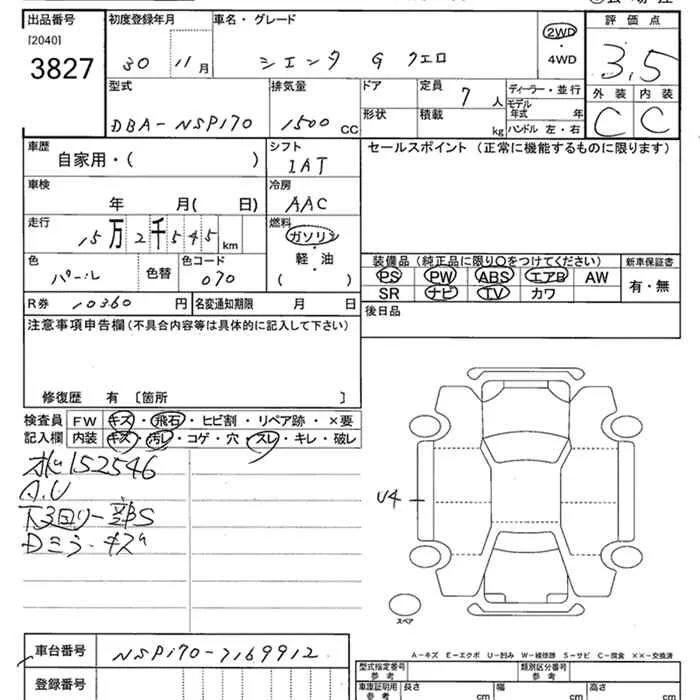 出品番号 初度登録年月 車名・グレード 評価点
[2040]
3827 30 11月 シエンタ G クエロ 2WD ・ 4WD 3.5
型式 排気量 ドア 定員 7人 ディーラー・並行 外装 内装
DBA-NSP170 1500 CC 形状 積載 kg モデル年式 年 ハンドル 左・右 C C
車歴 自家用・( ) シフト 1AT セールスポイント(正常に機能するものに限ります)
車検 年 月( 日) 冷房 AAC
走行 15万2千545km 燃料 ガソリン・軽・油 ( )
色 パール 色替 色コード 070
装備品(純正品に限り○をつけてください) 新車保証書
PS PW ABS エアB AW 有・無
SR ナビ TV カワ
R券 10360円 名変通知期限 月 日 後日品
注意事項申告欄(不具合内容等は具体的に記入して下さい)
修復歴 有 〔箇所 〕
検査員 FW キズ・飛石・ヒビ割・リペア跡・×要
記入欄 内装 キズ・汚レ・コゲ・穴・スレ・キレ・破レ
152546
A.U
下回り一部S
Dミラーキズ
U4
スペア
A-キズ E-エクボ U-凹み W-補修跡 S-サビ C-腐食 ××-交換済
車台番号 NSP170-7169912
型式指定番号 参考 類別区分番号 参考
登録番号 車庫証明用 参考 長さ cm 幅 cm 高さ cm